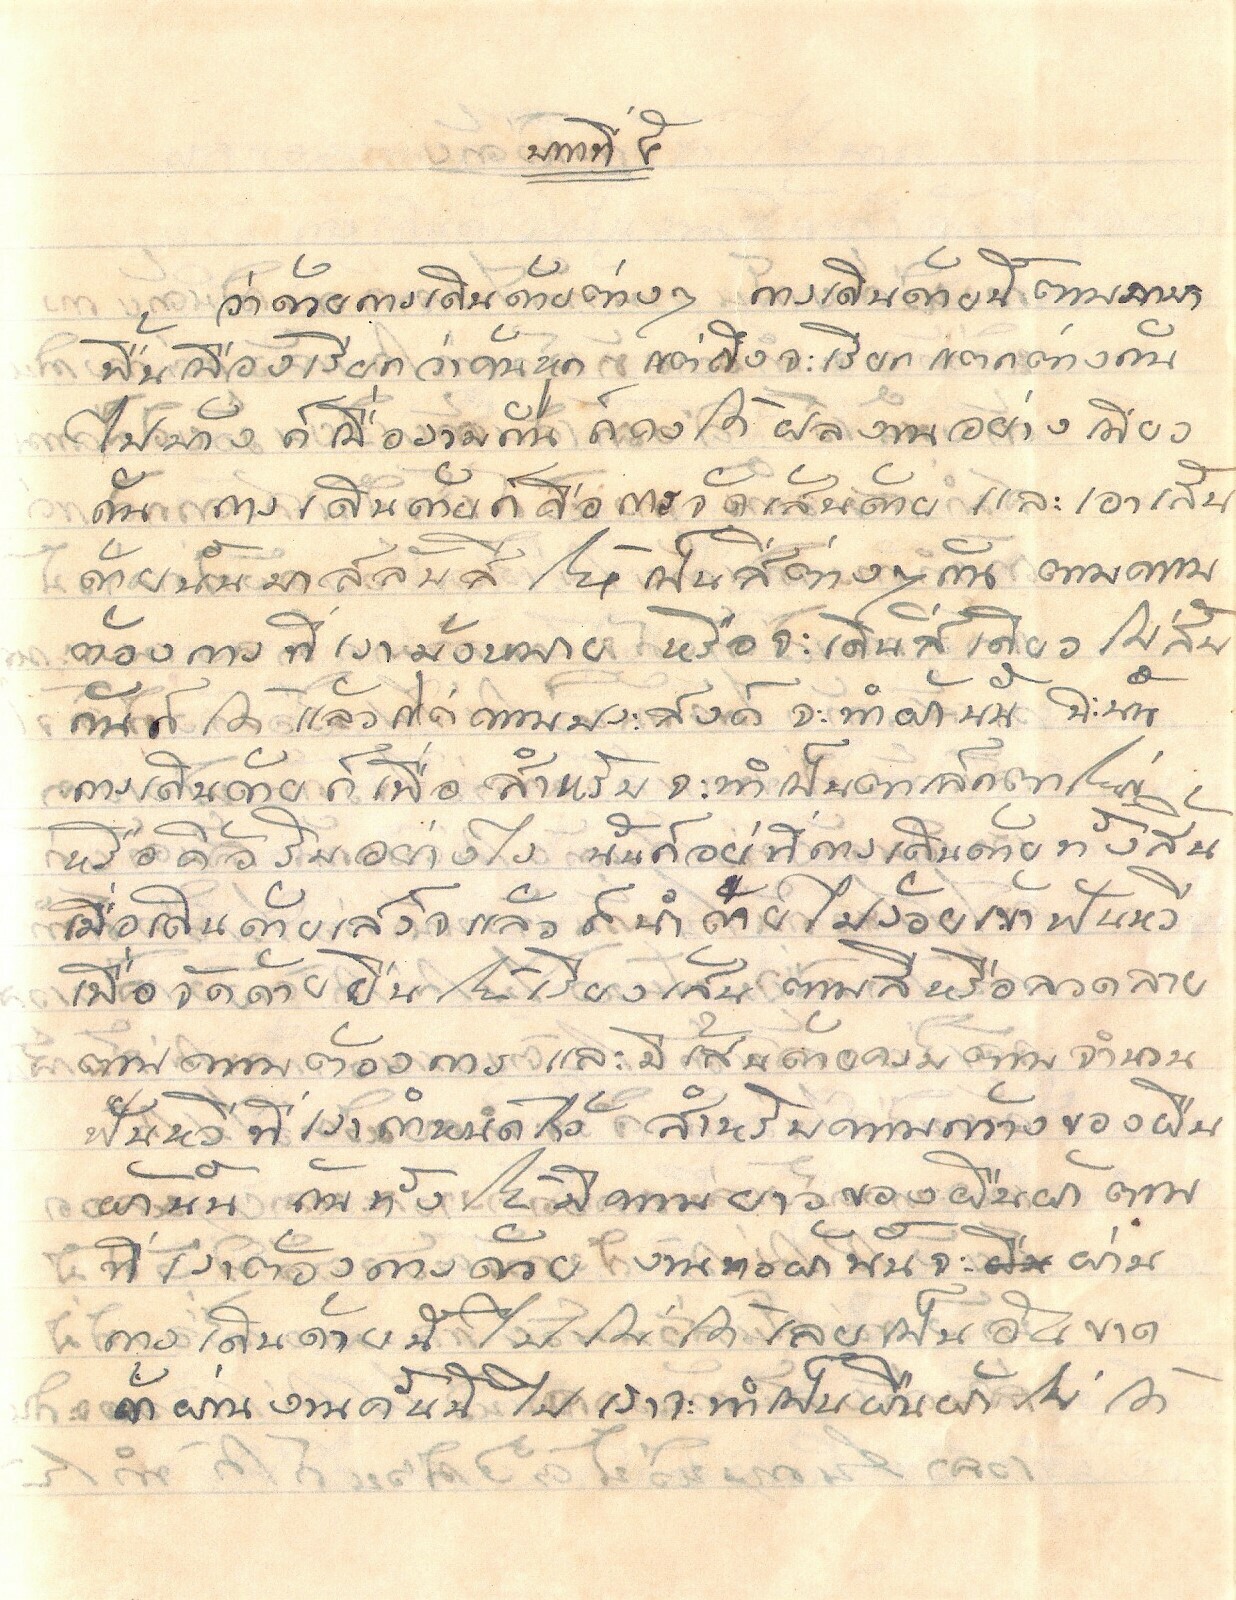 บทที่ ๕
ว่าด้วยการเดินด้ายต่างๆ การเดินด้ายนี้ตามภาษา
พื้นเมืองเรียกว่าค้นหูก แต่ถึงจะเรียกแตกต่างกัน
ไปบ้าง ก็เมื่อรวมกัน ก็คงได้ผลงานอย่างเดียว
กัน การเดินด้ายก็คือการจัดเส้นด้าย และเอาเส้น
ด้ายนั้นมาสลับสี ให้เป็นสีต่างๆกัน ตามความ
ต้องการที่เรามุ้งหมาย หรือจะเดินสีเดียวไม่สลับ
กันก็ได้ แล้วแต่ความประสงค์จะทำผ้านั้น ฉะนั้น
การเดินด้ายก็เพื่อสำหรับจะทำเป็นตาเล็กตาใหญ่
หรือคิ้วริมอย่างไร นั้นก็อยู่ที่การเดินด้ายทั้งสิ้น
เมื่อเดินด้ายเสร็จแล้ว ก็นำด้ายไปร้อยเข้าฟันหวี
เพื่อจัดด้ายยืนให้เรียงเส้นตามสีหรือลวดลาย
ตามความต้องการ และมีเส้นด้ายครบตามจำนวน
ฟันหวีที่เรากำหนดไว้ สำหรับความกว้างของผืน
ผ้านั้น กับทั้งให้มีความยาวของผืนผ้าตาม
ที่เราต้องการด้วย งานทอผ้านั้นจะผ่าน
การเดินด้ายนี้ไปไม่ได้เลยเป็นอันขาด
ถ้าผ่านงานค้นนี้ไปเราจะทำเป็นผืนผ้าไม่ได้